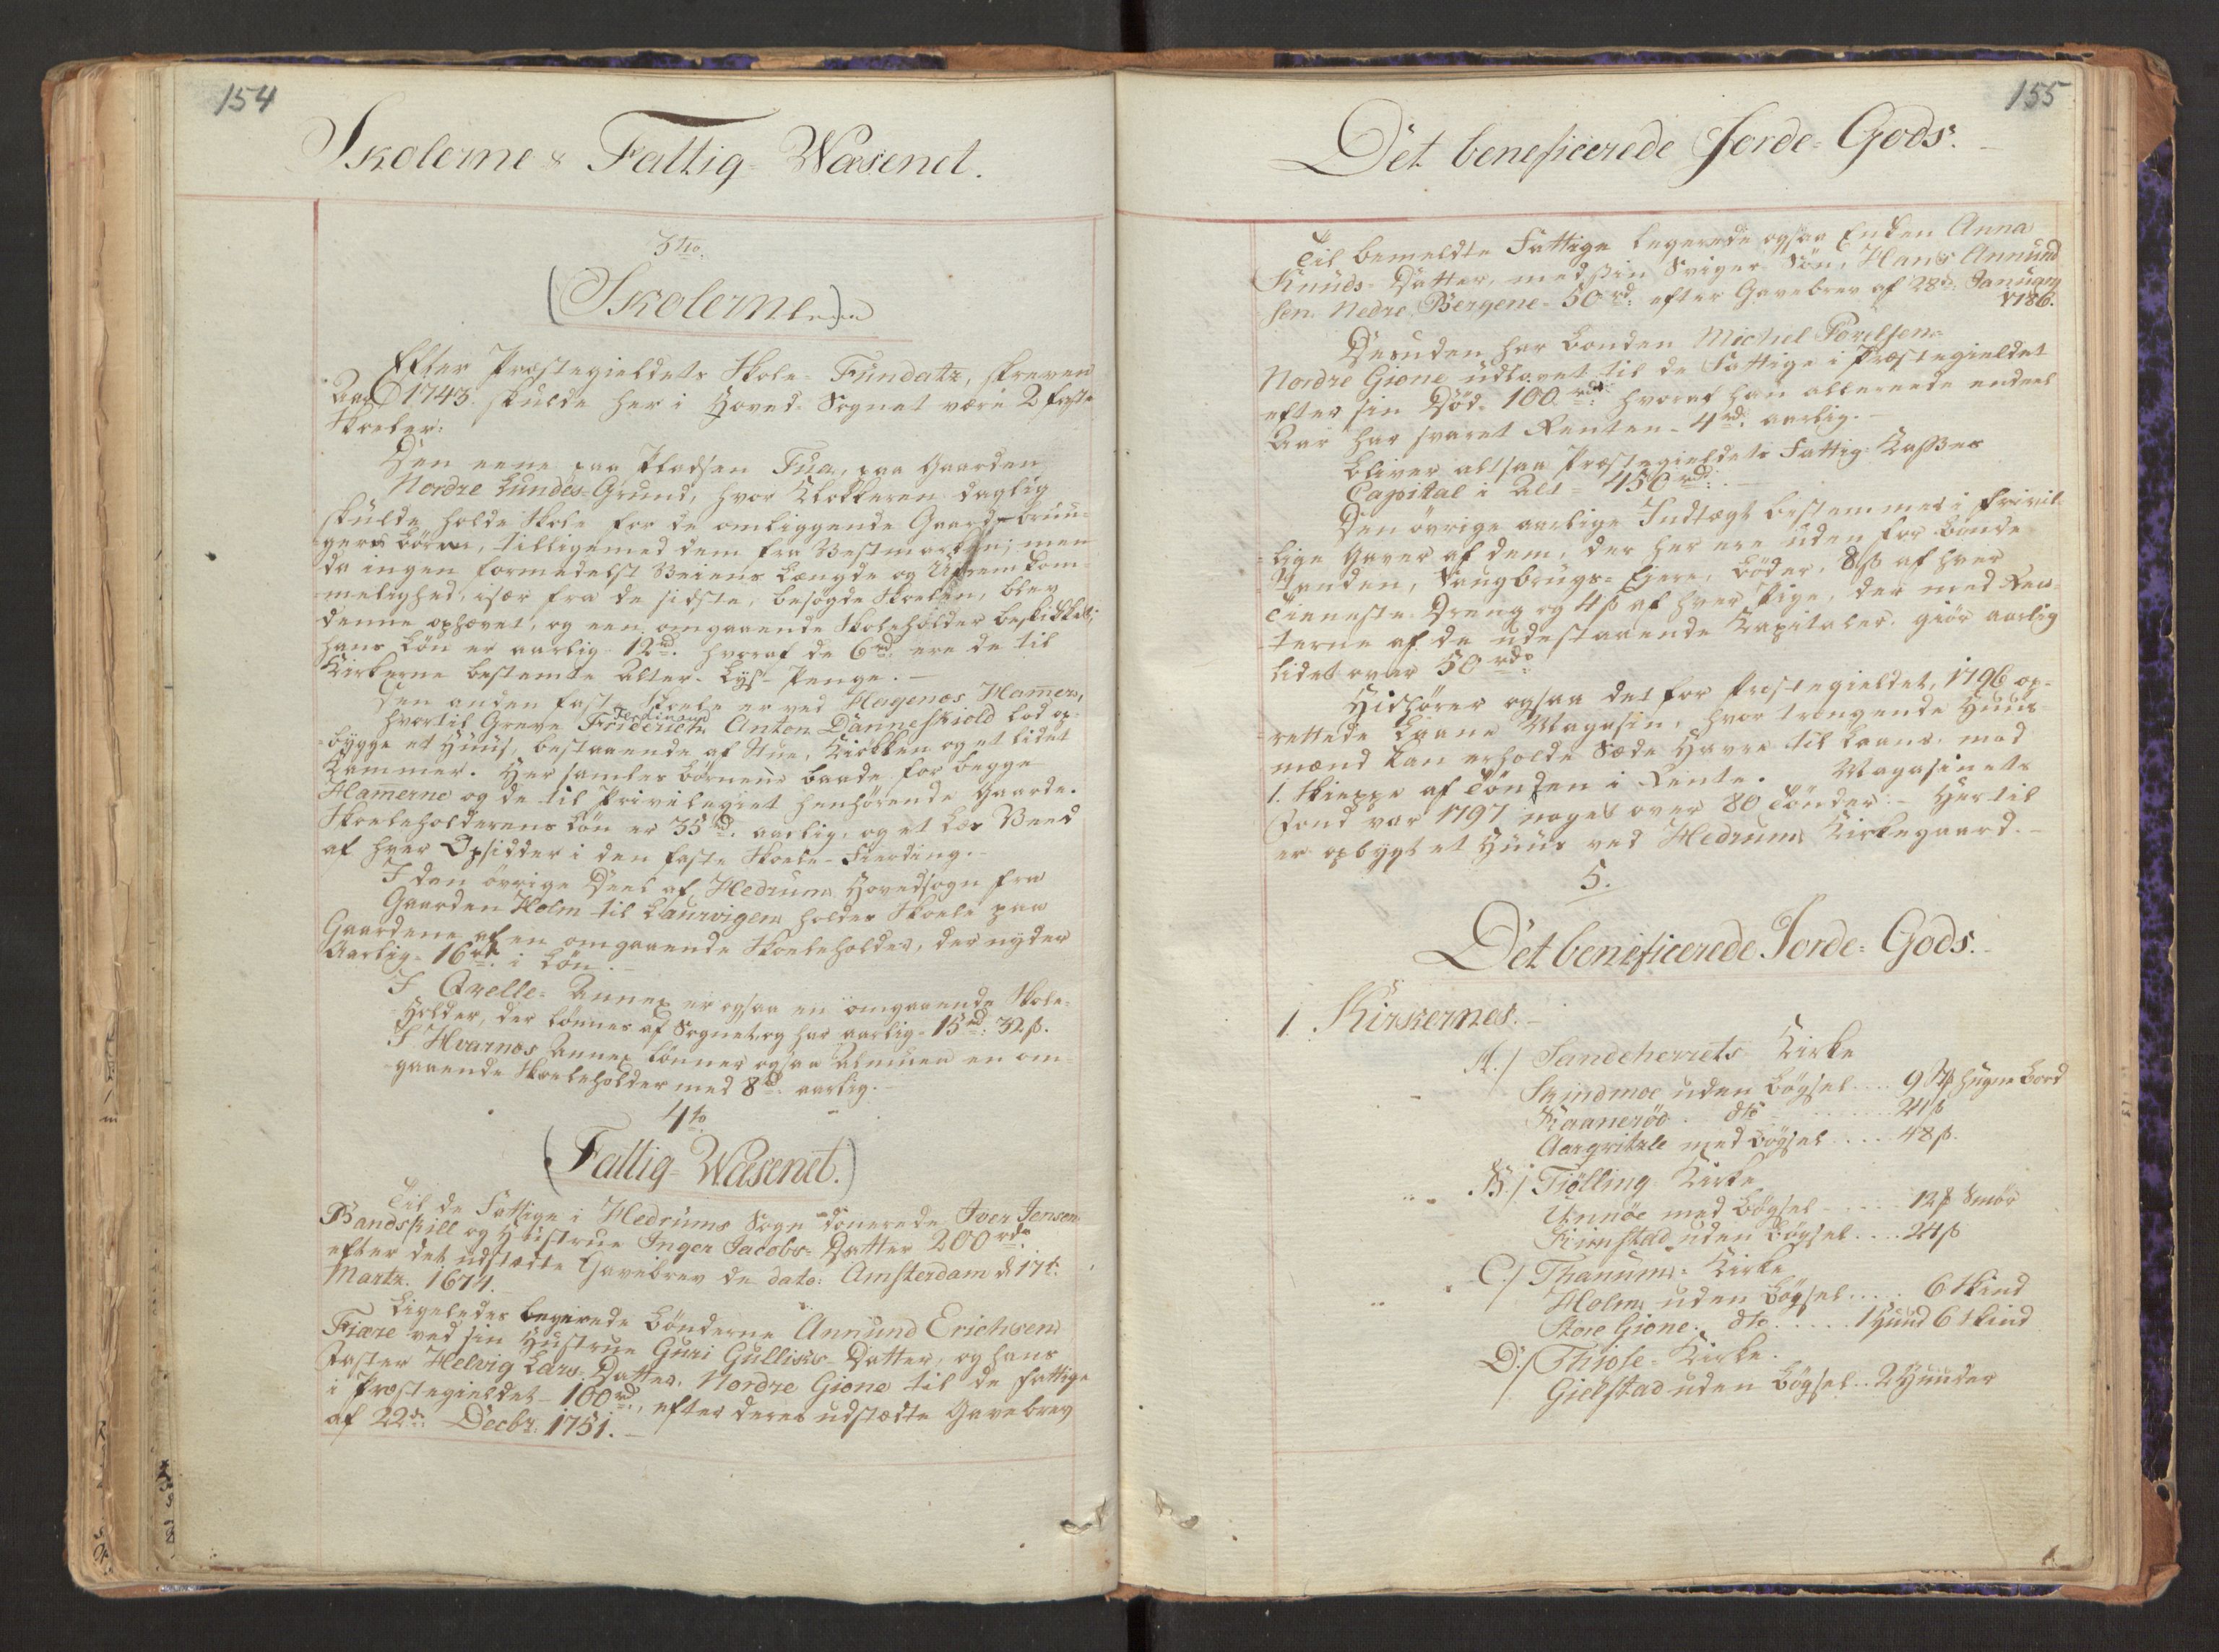 154
Skolerne & Fattig-Wæsenet.
3tio
(Skolerne)
Efter Præstegieldets Skole-Fundatz, skreven
Aar 1743. skulde her i Hoved-Sognet være 2 faste
Skoeler:
Den eene paa Pladsen Fua, paa Gaarden
Nordre Lundes-Grund, hvor Klokkeren daglig
skulde holde Skole for de omliggende Gaard-bruu-
gers Børn, tilligemed dem fra Vestmarken; men
da ingen formedelst Veiens Længde og Ufremkom-
melighed, især fra de sidste, besøgde Skoelen, blev
denne ophævet, og een omgaaende Skoleholder beskikket;
hans Løn er aarlig 12 rd. hvoraf de 6 rd. ere de til
Kirkerne bestemte Alter-Lys-Penge.
Den anden fast Skoele er ved Hagenæs Hamer,
hvortil Greve Friderich Ferdinand Anton Danneskiold lod op-
bygge et Huus, bestaaende af Stue, Kiøkken og et lidet
Kammer. Her samles Børnene baade for begge
Hamerne og de til Privilegiet henhørende Gaarde.
Skoeleholderens Løn er 35 rd. aarlig, og et Læs Veed
af hver Opsidder i den faste Skoele-Fierding.
I den øvrige Deel af Hedrums Hovedsogn fra
Gaarden Holm til Laurvigen holdes Skoele paa
Gaardene af en omgaaende Skoeleholder, der nyder
Aarlig 16 rd. i Løn.
I Qvelle-Annex er ogsaa en omgaaende Skole-
Holder, der lønnes af Sognet, og har aarlig 15 rd: 32 ß.
I Hvarnæs Annex lønner ogsaa Almuen en om-
gaaende Skoeleholder med 8 rd. aarlig.
4to
(Fattig-Wæsenet.)
Til de Fattige i Hedrums Sogn donerede Iver Jensen
Bandskill og Hustrue Inger Jacobs-Datter 200 rdr
efter det udstædte Gavebrev de dato: Amsterdam d. 17t.
Martz. 1674.
Ligeledes legerede Bønderne Annund Erichsen
Fiære ved sin Hustrue Guri Gullichs-Datter, og hans
Faster Helvig Lars-Datter, Nordre Gione til de fattige
i Præstegieldet 100 rd., efter deres udstædte Gavebrev
af 22d. Decbr. 1751.
155
Det beneficerede Jorde-Gods.
Til bemeldte Fattige legerede ogsaa Enken Anna
Knuds-Datter, med sin Sviger-Søn, Hans Annund
sen Nedre Bergene 50 rd: efter Gavebrev af 28d. Januarj
1786.
Desuden har Bonden Michel Povelsen
Nordre Gione udlovet til de Fattige i Præstegieldet
efter sin Død 100 rd: hvoraf han allereede endeel
Aar har svaret Renten 4 rd. aarlig.
Bliver altsaa Præstegieldets Fattig-Casses
Capital i Alt 450 rd:
Den øvrige aarlige Indtægt bestemmes i frivil-
lige Gaver af dem, der her ere uden for Bonde
Standen, Saugbrugs-Eiere, Bøder, 8 ß af hver
Tieneste Dreng og 4 ß af hver Pige, der med Ren-
terne af de udestaaende Kapitaler giør aarlig
lidet over 50 rdr
Hidhører ogsaa det for Præstegieldet, 1796 op-
rettede Laane Magasin, hvor trængende Huus-
mænd kan erholde Sæde Havre til Laans mod
1. Skieppe af Tønden i Rente. Magasinets
Fond var 1797 noget over 80 Tønder. Hertil
er opbygt et Huus ved Hedrums Kirkegaard.
5.
Det beneficerede Jorde-Gods.
1. Kirkernes.
A./ Sandeherrets Kirke
Skindmoe uden Bøgsel .... 9 Hugne Bord
Raanerød dto ........ 24 ß
Aargvitzle med Bøgsel .... 48 ß.
B./ Tiølling Kirke
Unnøe med Bøgsel ..... 12 ß Smør
Kimstad uden Bøgsel .... 24 ß
C./ Thanums-Kirke
Holm uden Bøgsel .... 6 Skind
Store Gione. dto ..... 1 Huud 6 Skind
D./ Thiose-Kirke.
Gielstad uden Bøgsel .. 2 Huuder